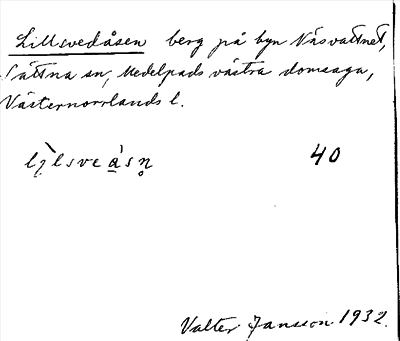 Lillsvedåsen berg på byn Näsvattnet,
Sättna sn, Medelpads västra domsaga,
Västernorrlands l.
lı̣̀lsveà̲sn̥ 40
Valter Jansson 1932.